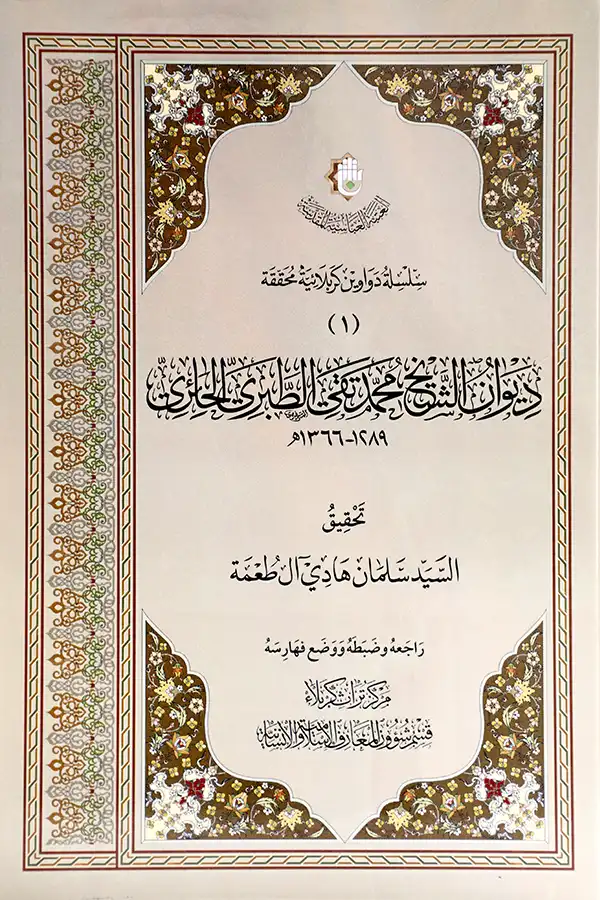 العتبة العباسية المقدسة
سِلْسِلَةُ دَوَاوِين كَرْبَلَائِيَّة مُحَقَّقَة
(١)
دِيْوَانُ الشَّيْخِ مُحَمَّد تَقِي الطَّبَرِيّ الحَائِرِيّ
١٢٨٩-١٣٦٦هـ
تَحْقِيقُ
السَّيِّد سَلْمَان هَادِيّ آل طُعْمَة
رَاجَعَهُ وضَبَطَهُ وَوَضَع فَهَارِسَهُ
مَرْكَز تُرَاث كَرْبَلَاء
قِسْم شُؤُون المَعَارِف الإِسْلَامِيَّة وَالإِنْسَانِيَّة